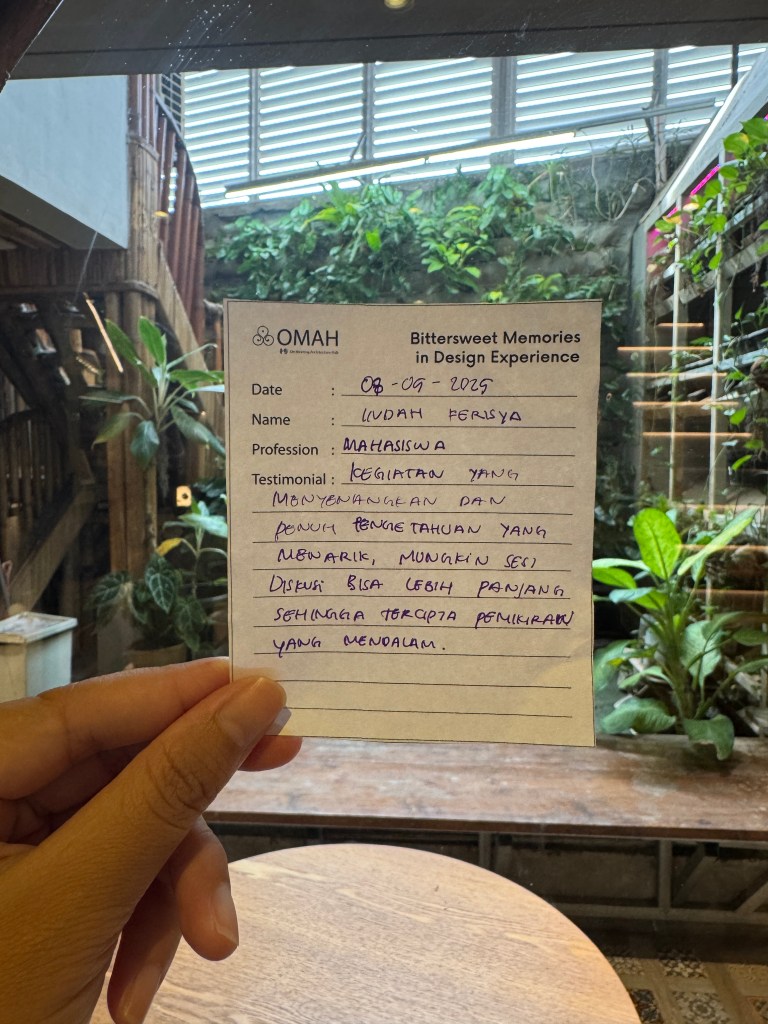 OMAH
Bittersweet Memories
in Design Experience
Date : 08-09-2025
Name : INDAH FERISYA
Profession : MAHASISWA
Testimonial : KEGIATAN YANG
MENYENANGKAN DAN
PENUH PENGETAHUAN YANG
MENARIK, MUNGKIN SESI
DISKUSI BISA LEBIH PANJANG
SEHINGGA TERCIPTA PEMIKIRAN
YANG MENDALAM.